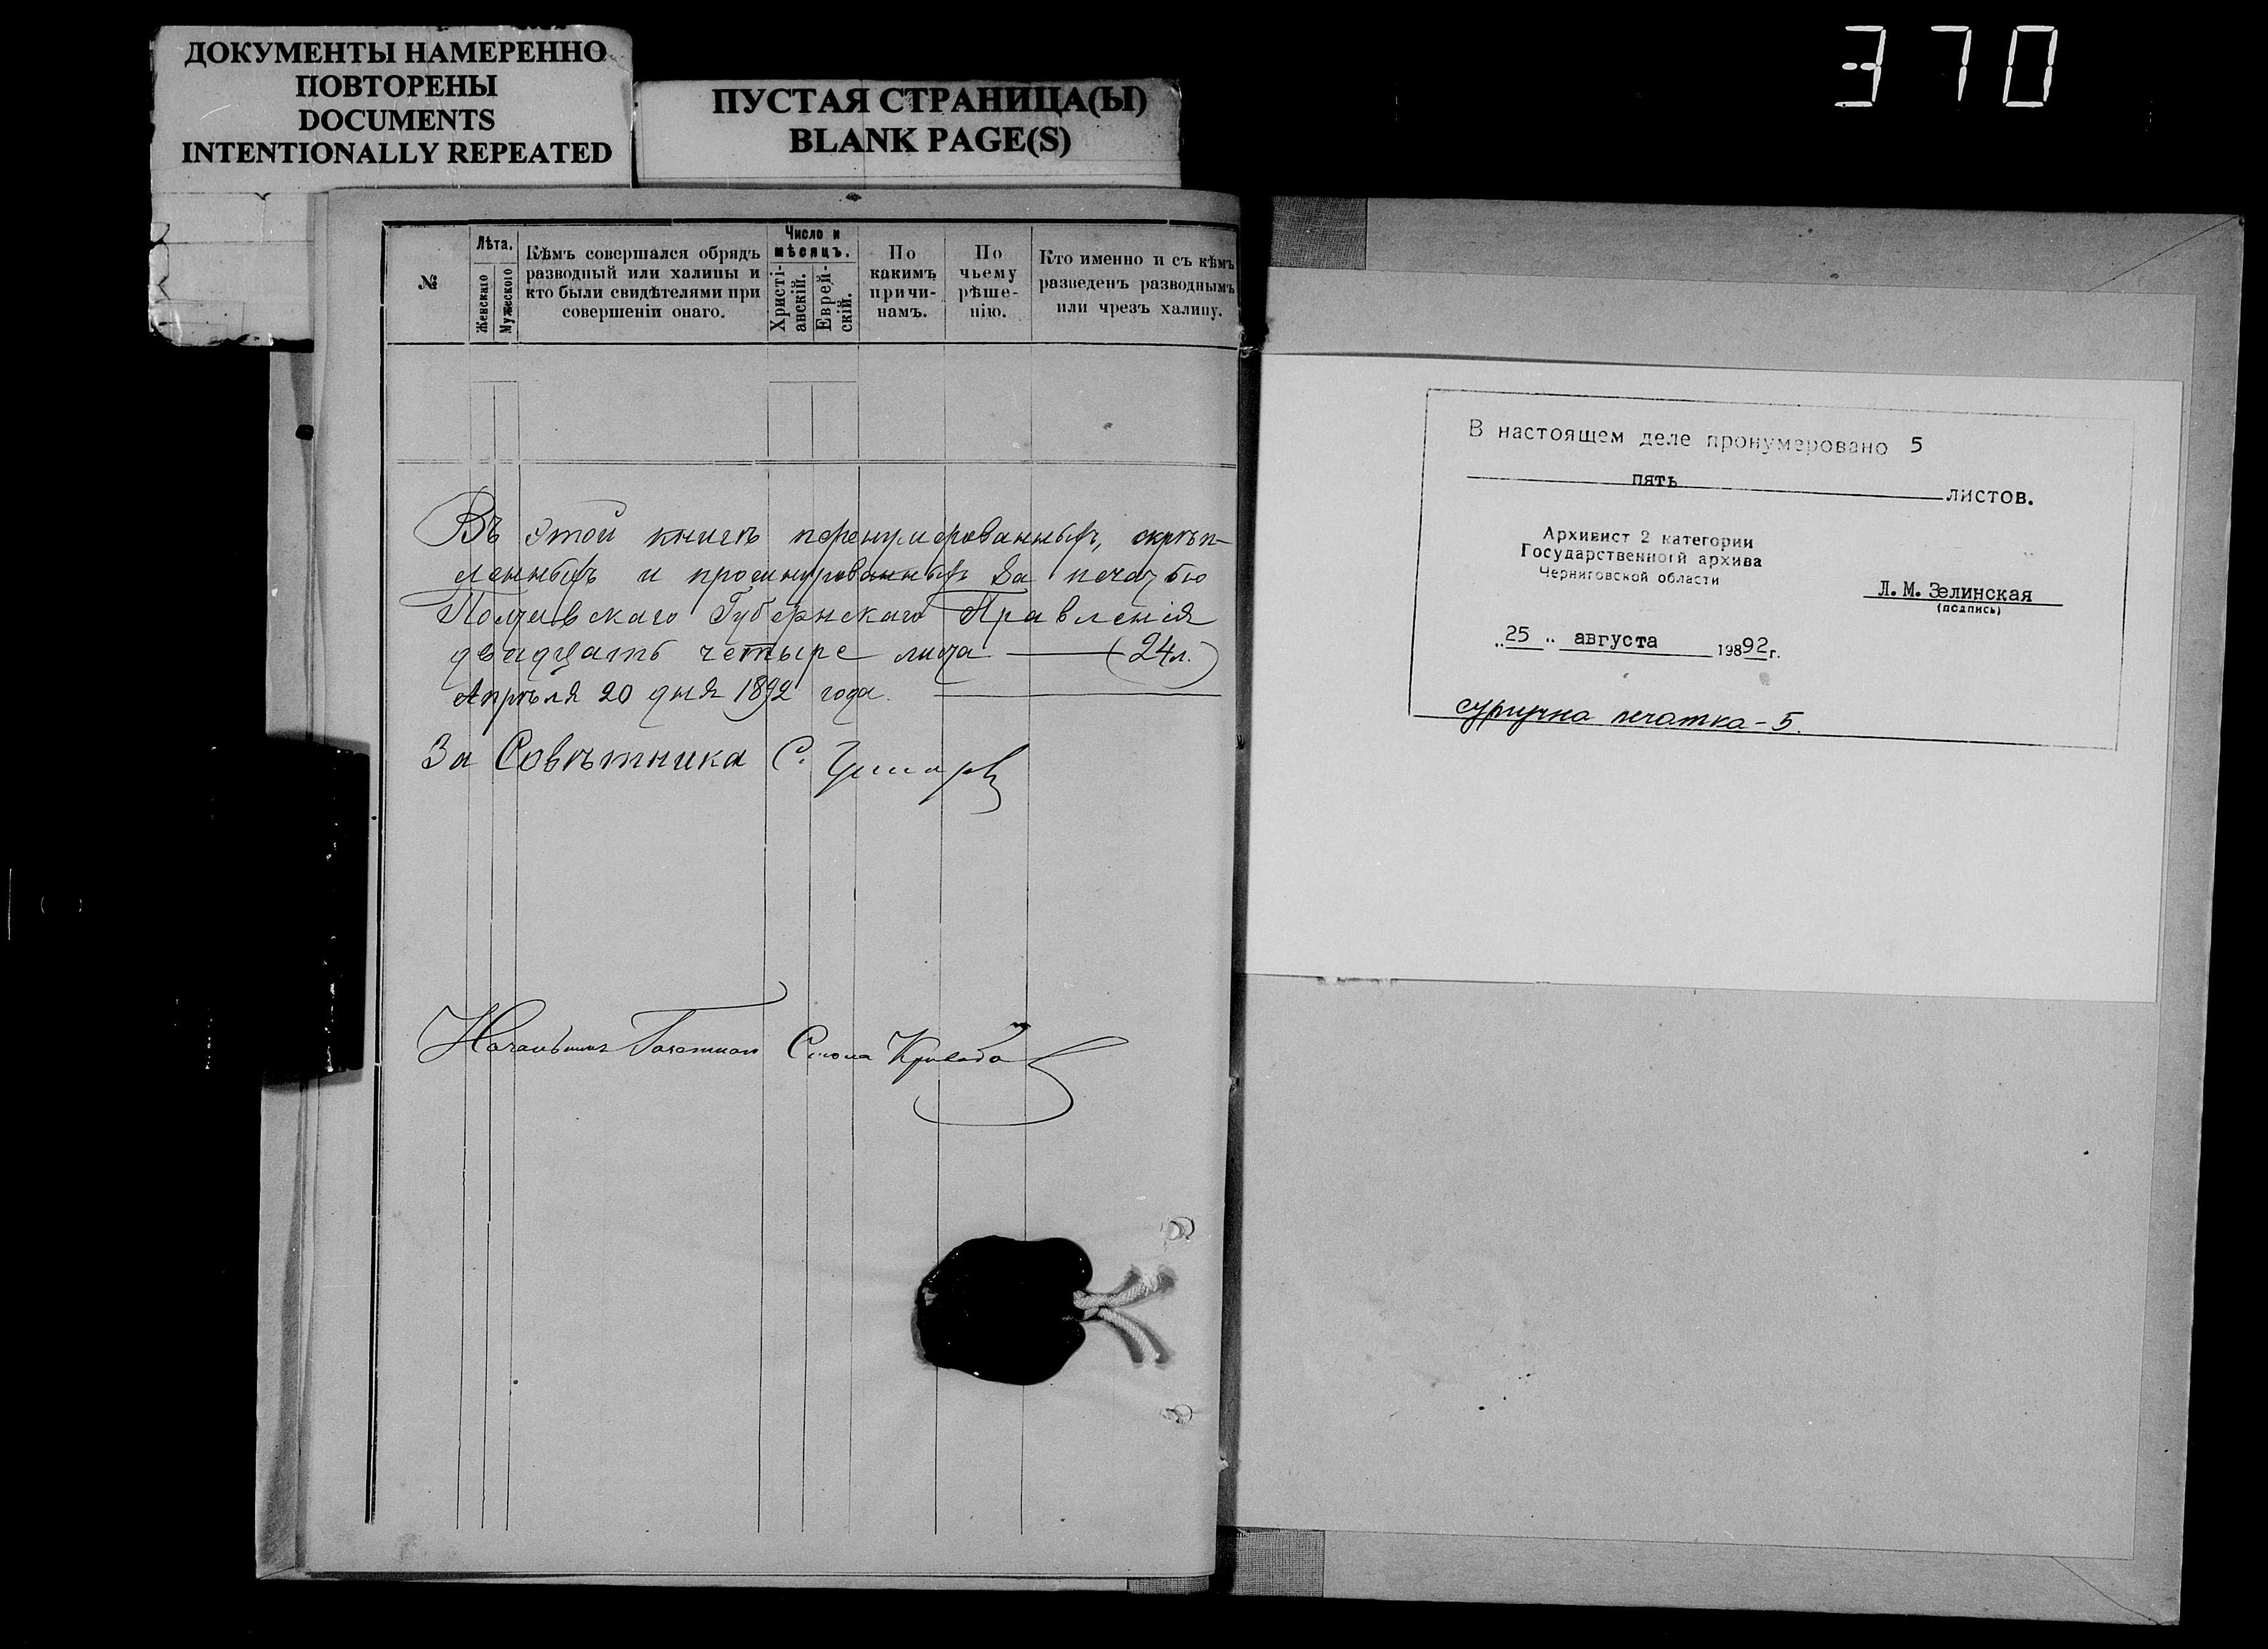 370
ДОКУМЕНТЫ НАМЕРЕННО
ПОВТОРЕНЫ
DOCUMENTS
INTENTIONALLY REPEATED
ПУСТАЯ СТРАНИЦА(Ы)
BLANK PAGE(S)
№
Лѣта.
Женскаго
Мужескаго
Кѣмъ совершался обрядъ
разводный или халицы и
кто были свидѣтелями при
совершеніи онаго.
Число и
мѣсяцъ.
Христі-
анскій.
Еврей-
скій.
По
какимъ
причи-
намъ.
По
чьему
рѣше-
нію.
Кто именно и съ кѣмъ
разведенъ разводнымъ
или чрезъ халицу.
Въ этой книгѣ перенумерованныхъ, скрѣп-
ленныхъ и прошнурованныхъ за печатью
Полтавскаго Губернскаго Правленія
двадцать четыре листа (24 л.)
Апрѣля 20 дня 1892 года.
За Совѣтника С.
Начальникъ Газетнаго Стола
В настоящем деле пронумеровано 5
пять листов.
Архивист 2 категории
Государственногй архива
Черниговской области
Л.М.Зелинская
(подпись)
„25„ августа 19892г.
сургучна печатка - 5.